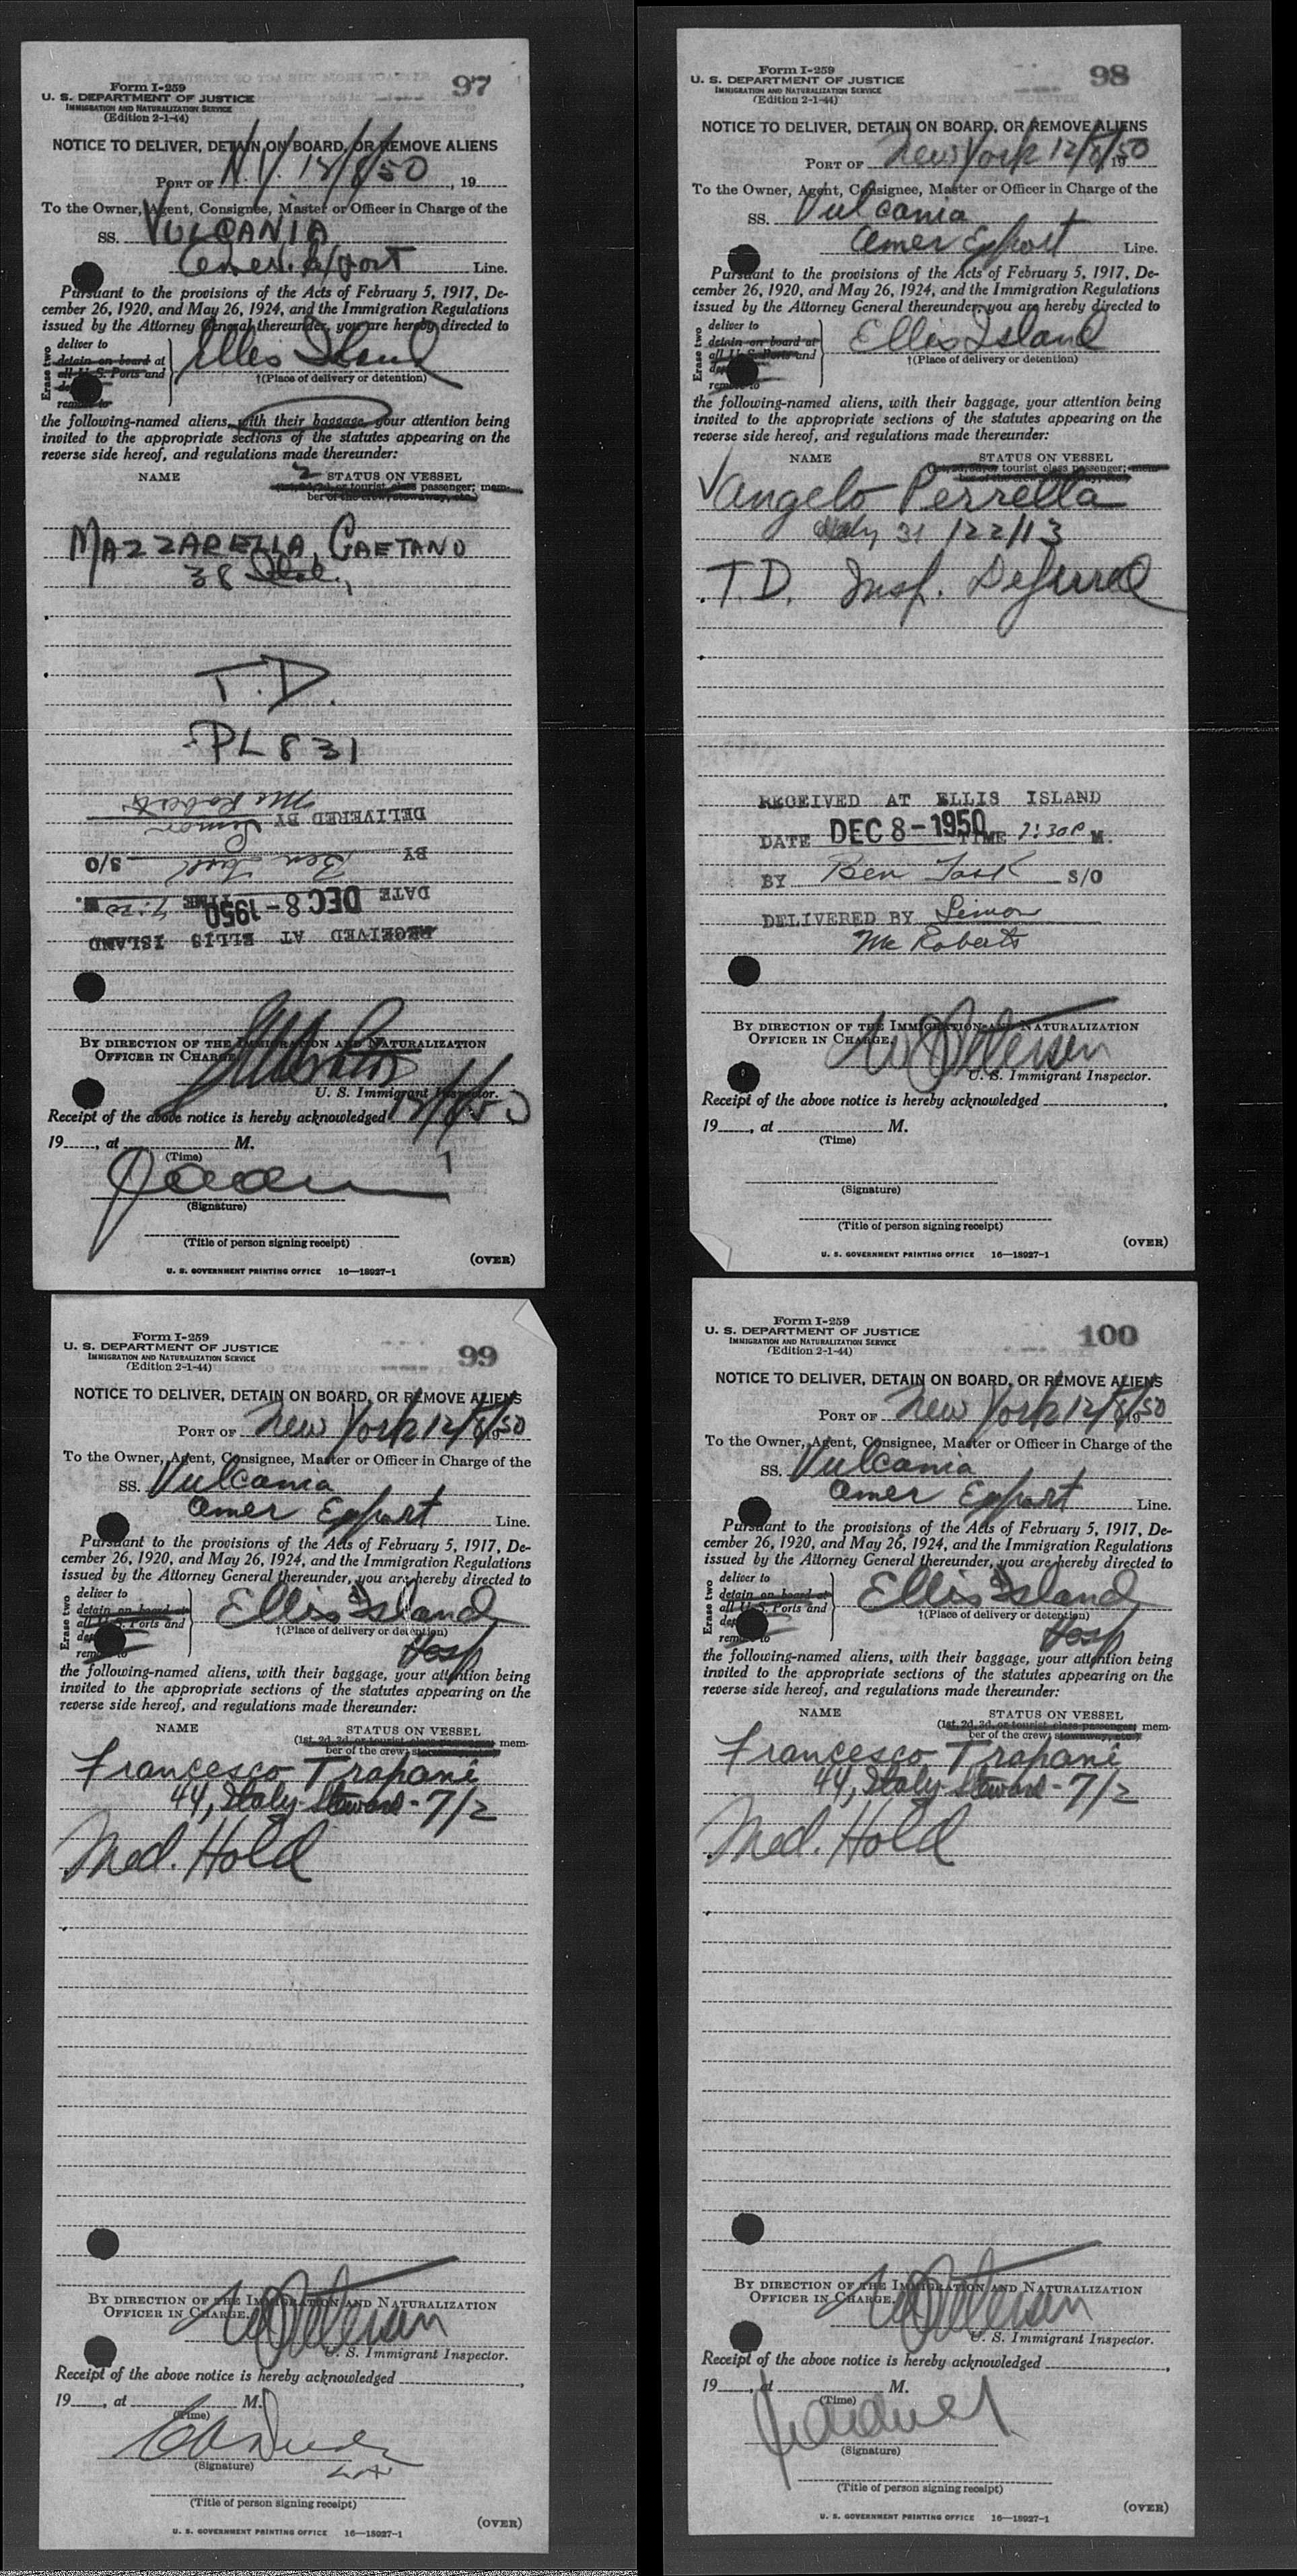 97
Form I-259
U. S. DEPARTMENT OF JUSTICE
IMMIGRATION AND NATURALIZATION SERVICE
(Edition 2-1-44)
NOTICE TO DELIVER, DETAIN ON BOARD, OR REMOVE ALIENS
PORT OF N.Y. 12/8/50, 19
To the Owner, Agent, Consignee, Master or Officer in Charge of the
SS. VULCANIA
Amer. Export Line.
Pursuant to the provisions of the Acts of February 5, 1917, De-
cember 26, 1920, and May 26, 1924, and the Immigration Regulations
issued by the Attorney General thereunder, you are hereby directed to
Erase two
deliver to
detain on board at
all U. S. Ports and
remove to
Ellis Island
†(Place of delivery or detention)
the following-named aliens, with their baggage, your attention being
invited to the appropriate sections of the statutes appearing on the
reverse side hereof, and regulations made thereunder:
NAME 2 STATUS ON VESSEL
(1st, 2d, 3d, or tourist class passenger; mem-
ber of the crew, stowaway, etc.)
MAZZARELLA, GAETANO
38 Italy
T.D.
PL 831
RECEIVED AT ELLIS ISLAND
DATE DEC 8 - 1950 TIME M.
BY Ben Task S/O
DELIVERED BY Simon
McRoberts
BY DIRECTION OF THE IMMIGRATION AND NATURALIZATION
OFFICER IN CHARGE.
U. S. Immigrant Inspector.
Receipt of the above notice is hereby acknowledged 12/8/50
19, at M.
(Time)
(Signature)
(Title of person signing receipt)
(OVER)
U. S. GOVERNMENT PRINTING OFFICE 16—18927-1
98
Form I-259
U. S. DEPARTMENT OF JUSTICE
IMMIGRATION AND NATURALIZATION SERVICE
(Edition 2-1-44)
NOTICE TO DELIVER, DETAIN ON BOARD, OR REMOVE ALIENS
PORT OF New York 12/8/1950
To the Owner, Agent, Consignee, Master or Officer in Charge of the
SS. Vulcania
Amer Export Line.
Pursuant to the provisions of the Acts of February 5, 1917, De-
cember 26, 1920, and May 26, 1924, and the Immigration Regulations
issued by the Attorney General thereunder, you are hereby directed to
Erase two
deliver to
detain on board at
all U. S. Ports and
remove to
Ellis Island
†(Place of delivery or detention)
the following-named aliens, with their baggage, your attention being
invited to the appropriate sections of the statutes appearing on the
reverse side hereof, and regulations made thereunder:
NAME STATUS ON VESSEL
(1st, 2d, 3d, or tourist class passenger; mem-
ber of the crew, stowaway, etc.)
Angelo Perrella
Italy 31 /22/13
T.D. Insp. Deferred
RECEIVED AT ELLIS ISLAND
DATE DEC 8 - 1950 TIME 7:30 P M.
BY Ben Task S/O
DELIVERED BY Simon
McRoberts
BY DIRECTION OF THE IMMIGRATION AND NATURALIZATION
OFFICER IN CHARGE.
Petersen
U. S. Immigrant Inspector.
Receipt of the above notice is hereby acknowledged,
19, at M.
(Time)
(Signature)
(Title of person signing receipt)
(OVER)
U. S. GOVERNMENT PRINTING OFFICE 16—18927-1
99
Form I-259
U. S. DEPARTMENT OF JUSTICE
IMMIGRATION AND NATURALIZATION SERVICE
(Edition 2-1-44)
NOTICE TO DELIVER, DETAIN ON BOARD, OR REMOVE ALIENS
PORT OF New York 12/8/1950
To the Owner, Agent, Consignee, Master or Officer in Charge of the
SS. Vulcania
Amer Export Line.
Pursuant to the provisions of the Acts of February 5, 1917, De-
cember 26, 1920, and May 26, 1924, and the Immigration Regulations
issued by the Attorney General thereunder, you are hereby directed to
Erase two
deliver to
detain on board at
all U. S. Ports and
remove to
Ellis Island
†(Place of delivery or detention)
Hosp
the following-named aliens, with their baggage, your attention being
invited to the appropriate sections of the statutes appearing on the
reverse side hereof, and regulations made thereunder:
NAME STATUS ON VESSEL
(1st, 2d, 3d, or tourist class passenger; mem-
ber of the crew; stowaway, etc.)
Francesco Trapani
44, Italy Steward - 7/2
Med. Hold
BY DIRECTION OF THE IMMIGRATION AND NATURALIZATION
OFFICER IN CHARGE.
Petersen
U. S. Immigrant Inspector.
Receipt of the above notice is hereby acknowledged,
19, at M.
(Time)
(Signature)
(Title of person signing receipt)
(OVER)
U. S. GOVERNMENT PRINTING OFFICE 16—18927-1
100
Form I-259
U. S. DEPARTMENT OF JUSTICE
IMMIGRATION AND NATURALIZATION SERVICE
(Edition 2-1-44)
NOTICE TO DELIVER, DETAIN ON BOARD, OR REMOVE ALIENS
PORT OF New York 12/8/1950
To the Owner, Agent, Consignee, Master or Officer in Charge of the
SS. Vulcania
Amer Export Line.
Pursuant to the provisions of the Acts of February 5, 1917, De-
cember 26, 1920, and May 26, 1924, and the Immigration Regulations
issued by the Attorney General thereunder, you are hereby directed to
Erase two
deliver to
detain on board at
all U. S. Ports and
remove to
Ellis Island
†(Place of delivery or detention)
Hosp
the following-named aliens, with their baggage, your attention being
invited to the appropriate sections of the statutes appearing on the
reverse side hereof, and regulations made thereunder:
NAME STATUS ON VESSEL
(1st, 2d, 3d, or tourist class passenger; mem-
ber of the crew; stowaway, etc.)
Francesco Trapani
44, Italy Steward - 7/2
Med. Hold
BY DIRECTION OF THE IMMIGRATION AND NATURALIZATION
OFFICER IN CHARGE.
Petersen
U. S. Immigrant Inspector.
Receipt of the above notice is hereby acknowledged,
19, at M.
(Time)
(Signature)
(Title of person signing receipt)
(OVER)
U. S. GOVERNMENT PRINTING OFFICE 16—18927-1